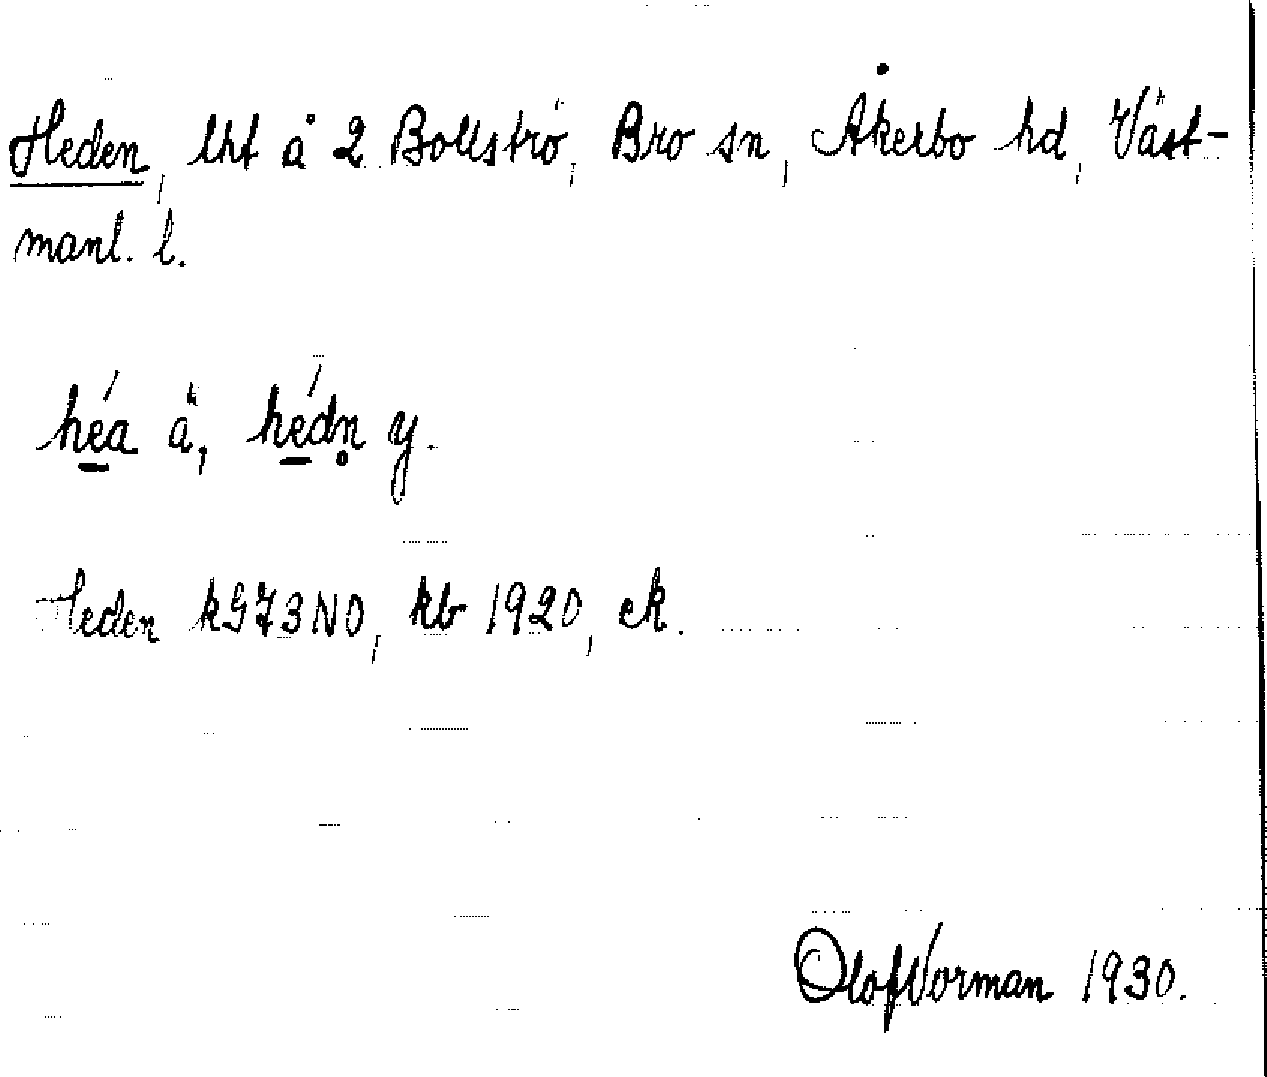 Heden, lht å 2 Bollströ, Bro sn, Åkerbo hd, Väst-
manl. l.
héa ä, hédn̥ y.
Heden kG73NO, kb 1920, ek.
Olof Vorman 1930.